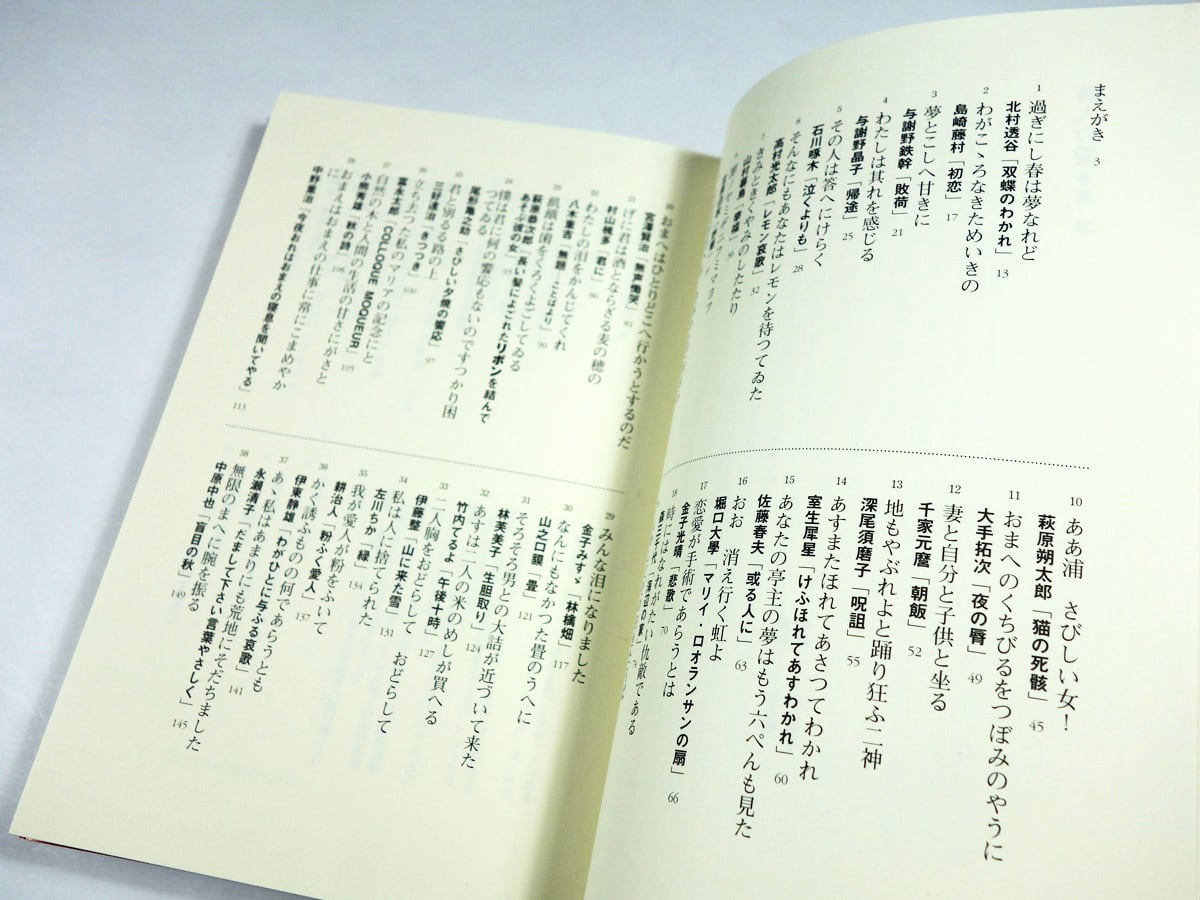 まえがき 3
1 過ぎにし春は夢なれど
北村透谷「双蝶のわかれ」 13
2 わがこゝろなきためいきの
島崎藤村「初恋」 17
3 夢とこしへ甘きに
与謝野鉄幹「敗荷」 21
4 わたしは其れを感じる
与謝野晶子「帰途」 25
5 その人は答へにけらく
石川啄木「泣くよりも」 28
6 そんなにもあなたはレモンを待つてゐた
高村光太郎「レモン哀歌」 32
7 きみときくやみのしたたり
10 ああ浦 さびしい女！
萩原朔太郎「猫の死骸」 45
11 おまへのくちびるをつぼみのやうに
大手拓次「夜の脣」 49
12 妻と自分と子供と坐る
千家元麿「朝飯」 52
13 地もやぶれよと踊り狂ふ二神
深尾須磨子「呪詛」 55
14 あすまたほれてあさつてわかれ
室生犀星「けふほれてあすわかれ」 60
15 あなたの亭主の夢はもう六ぺんも見た
佐藤春夫「或る人に」 63
16 おお 消え行く虹よ
堀口大學「マリイ・ロオランサンの扇」 66
17 恋愛が手術であらうとは
金子光晴「悲歌」 70
18 時にはなれがたい仇敵である
20 おまへはひとりどこへ行かうとするのだ
宮澤賢治「無声慟哭」 81
21 げに君は酒とならざる麦の穂の
村山槐多「君に」 86
22 わたしの泪をかんじてくれ
八木重吉「無題 ことばより」 90
23 紙順は歯をくろくよごしてゐる
萩原恭次郎「長い髪によごれたリボンを結んで
あそぶ彼の女」 93
24 僕は君に何の饗応もないのですつかり困
つてゐる
尾形亀之助「さびしい夕焼の饗応」 97
25 君と別るる路の上
三好達治「きつつき」 100
26 立ち去つた私のマリアの記念にと
富永太郎「COLLOQUE MOQUEUR」 105
27 自然の木と人間の生活の甘さにがさと
小熊秀雄「秋の詩」 108
28 おまえはおまえの仕事に常にこまめやか
中野重治「今夜おれはおまえの寝息を聞いてやる」 113
29 みんな泪になりました
金子みすゞ「林檎畑」 117
30 なんにもなかつた畳のうへに
山之口貘「畳」 121
31 そろそろ男との大詰が近づいて来た
林芙美子「生胆取り」 124
32 あすは二人の米のめしが買へる
竹内てるよ「午後十時」 127
33 二人胸をおどらして おどらして
伊藤整「山に来た雪」 131
34 私は人に捨てられた
左川ちか「緑」 134
35 我が愛人が粉をふいて
耕治人「粉ふく愛人」 137
36 かく誘ふものの何であらうとも
伊東静雄「わがひとに与ふる哀歌」 141
37 あゝ私はあまりにも荒地にそだちました
永瀬清子「だまして下さい言葉やさしく」 145
38 無限のまへに腕を振る
中原中也「盲目の秋」 149